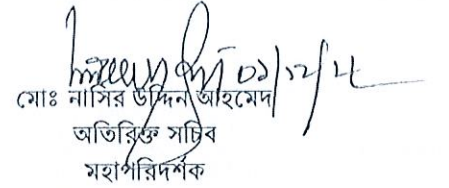 মোঃ নাসির উদ্দিন আহমেদ
অতিরিক্ত সচিব
মহাপরিদর্শক